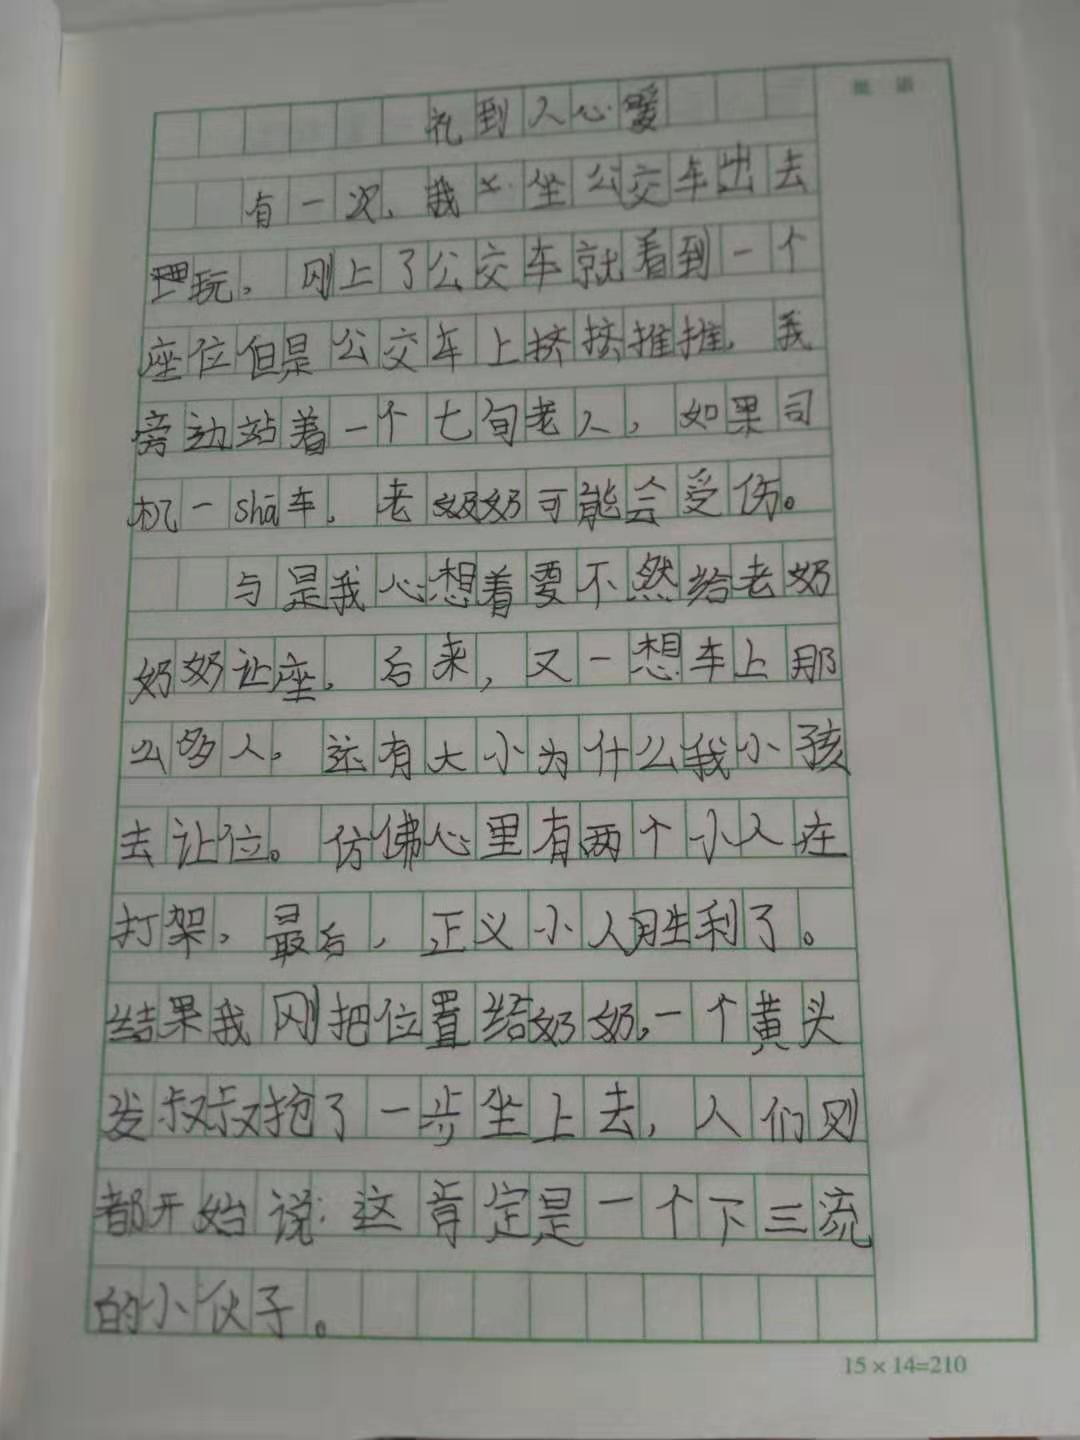 批 语
礼到人心暖
有一次，我坐公交车出去
玩，刚上了公交车就看到一个
座位但是公交车上挤挤推推，我
旁边站着一个七旬老人，如果司
机一shā车，老奶奶可能会受伤。
与是我心想着要不然给老奶
奶奶让座，后来，又一想车上那
么多人，还有大小为什么我小孩
去让位。仿佛心里有两个小人在
打架，最后，正义小人胜利了。
结果我刚把位置给奶奶，一个黄头
发叔叔抢了一步坐上去，人们则
都开始说：这肯定是一个下三流
的小伙子。
15×14=210